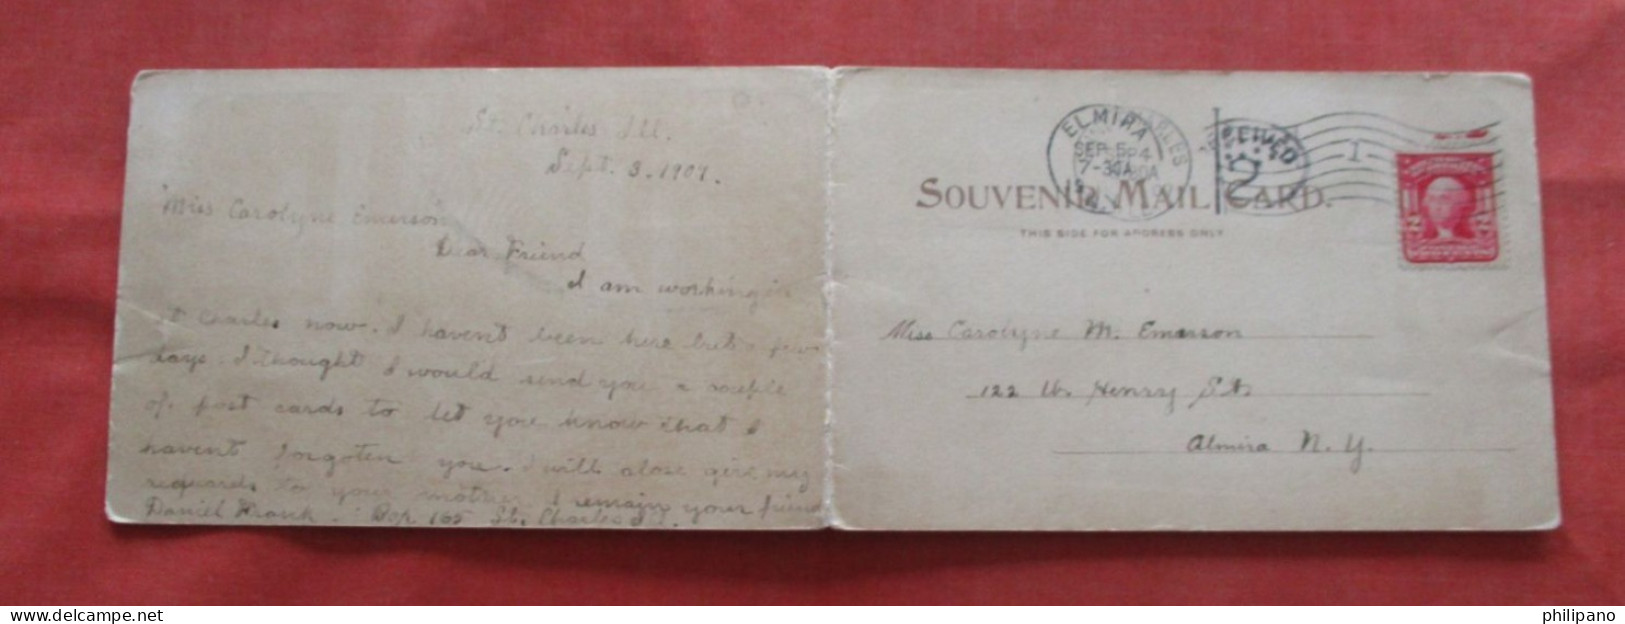 St. Charles Ill.
Sept. 3. 1907.
Miss Carolyne Emerson
Dear Friend
I am working in
St Charles now. I havent been here but a few
days. I thought I would send you a couple
of post cards to let you know that I
havent forgoten you. I will close give my
reguards to your mother I remain your friend
Daniel Box 165 St. Charles Ill.
ELMIRA
SEP 5
7-30A
RECEIVED
2
1
SOUVENIR MAIL CARD.
THIS SIDE FOR ADDRESS ONLY
2 2
Miss Carolyne M. Emerson
122 W. Henry St.
Almira N. Y.
philipano